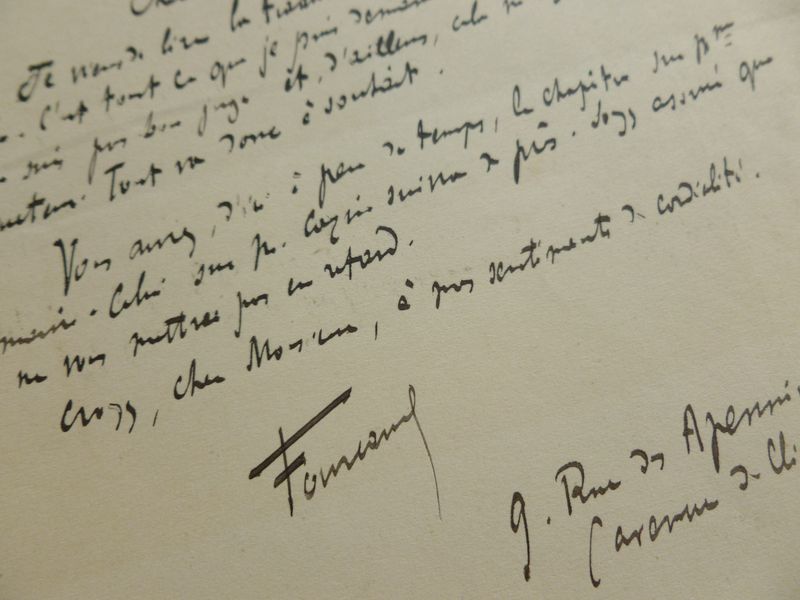 Je viens de lire la
. C'est tout ce que je puis deman
suis pas bon juge et, d'ailleurs, cela
Tout va donc à souhait.
Vous aurez, d'ici à peu de temps, le chapitre sur
Celui sur M. Cazin suivra de près. Soyez assuré que
ne vous mettrai pas en retard.
Croyez, cher Monsieur, à mes sentiments de cordialité.
Fourcaud
9. Rue des Apennin
(avenue de Cli